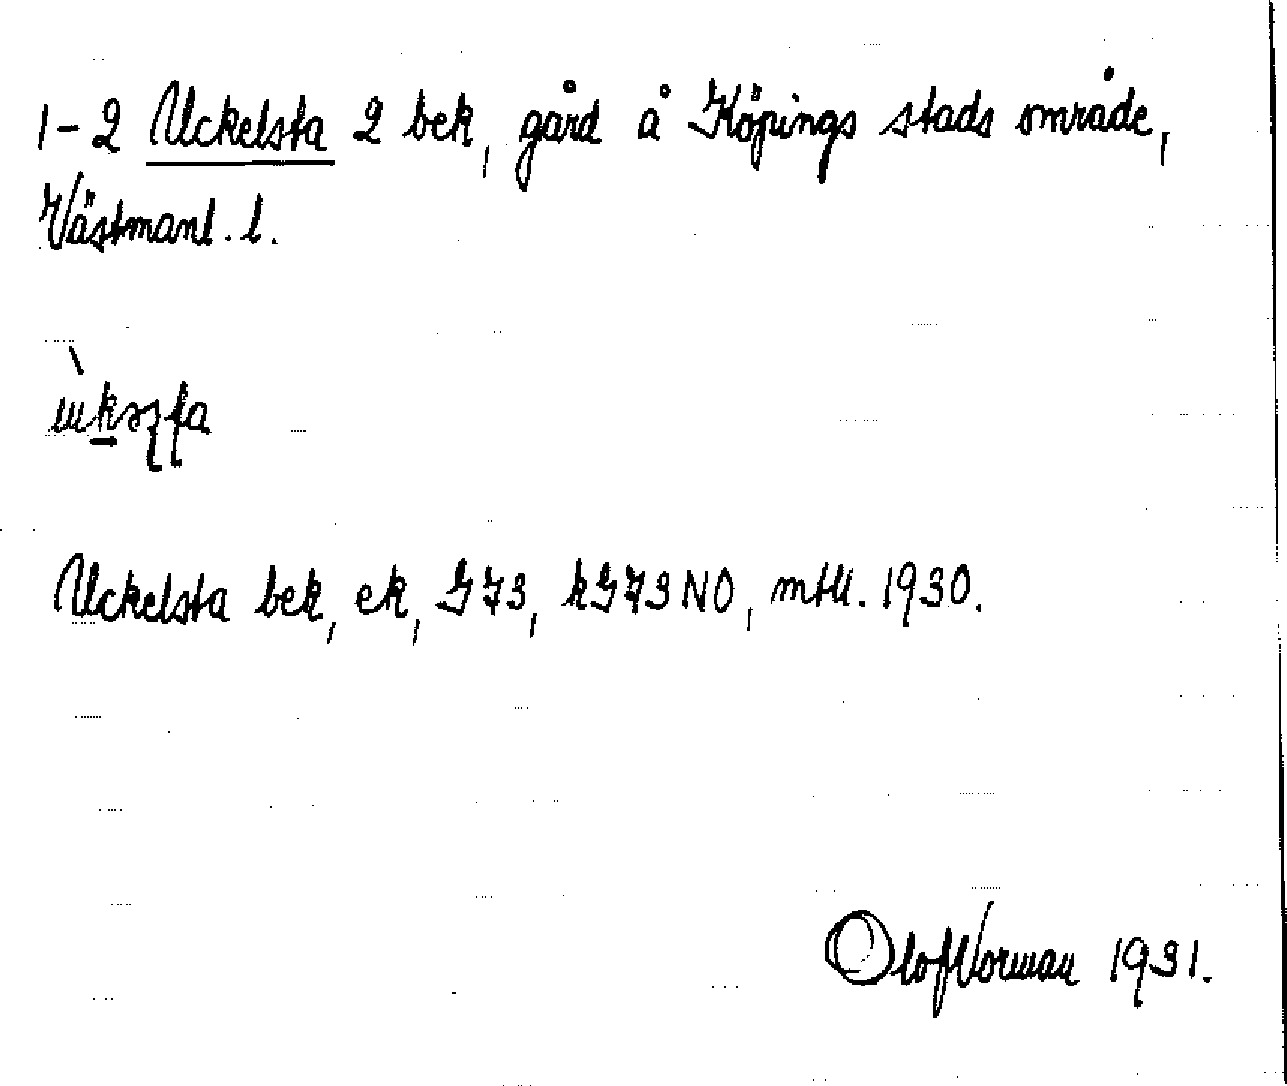 1-2 Uckelsta 2 bek, gård å Köpings stads område,
Västmanl. l.
Uckelsta bek, ek, G73, kG73NO, mtll. 1930.
Olof Norman 1931.